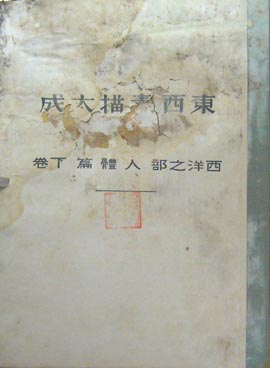 東西素描大成
西洋之部 人體篇 下卷